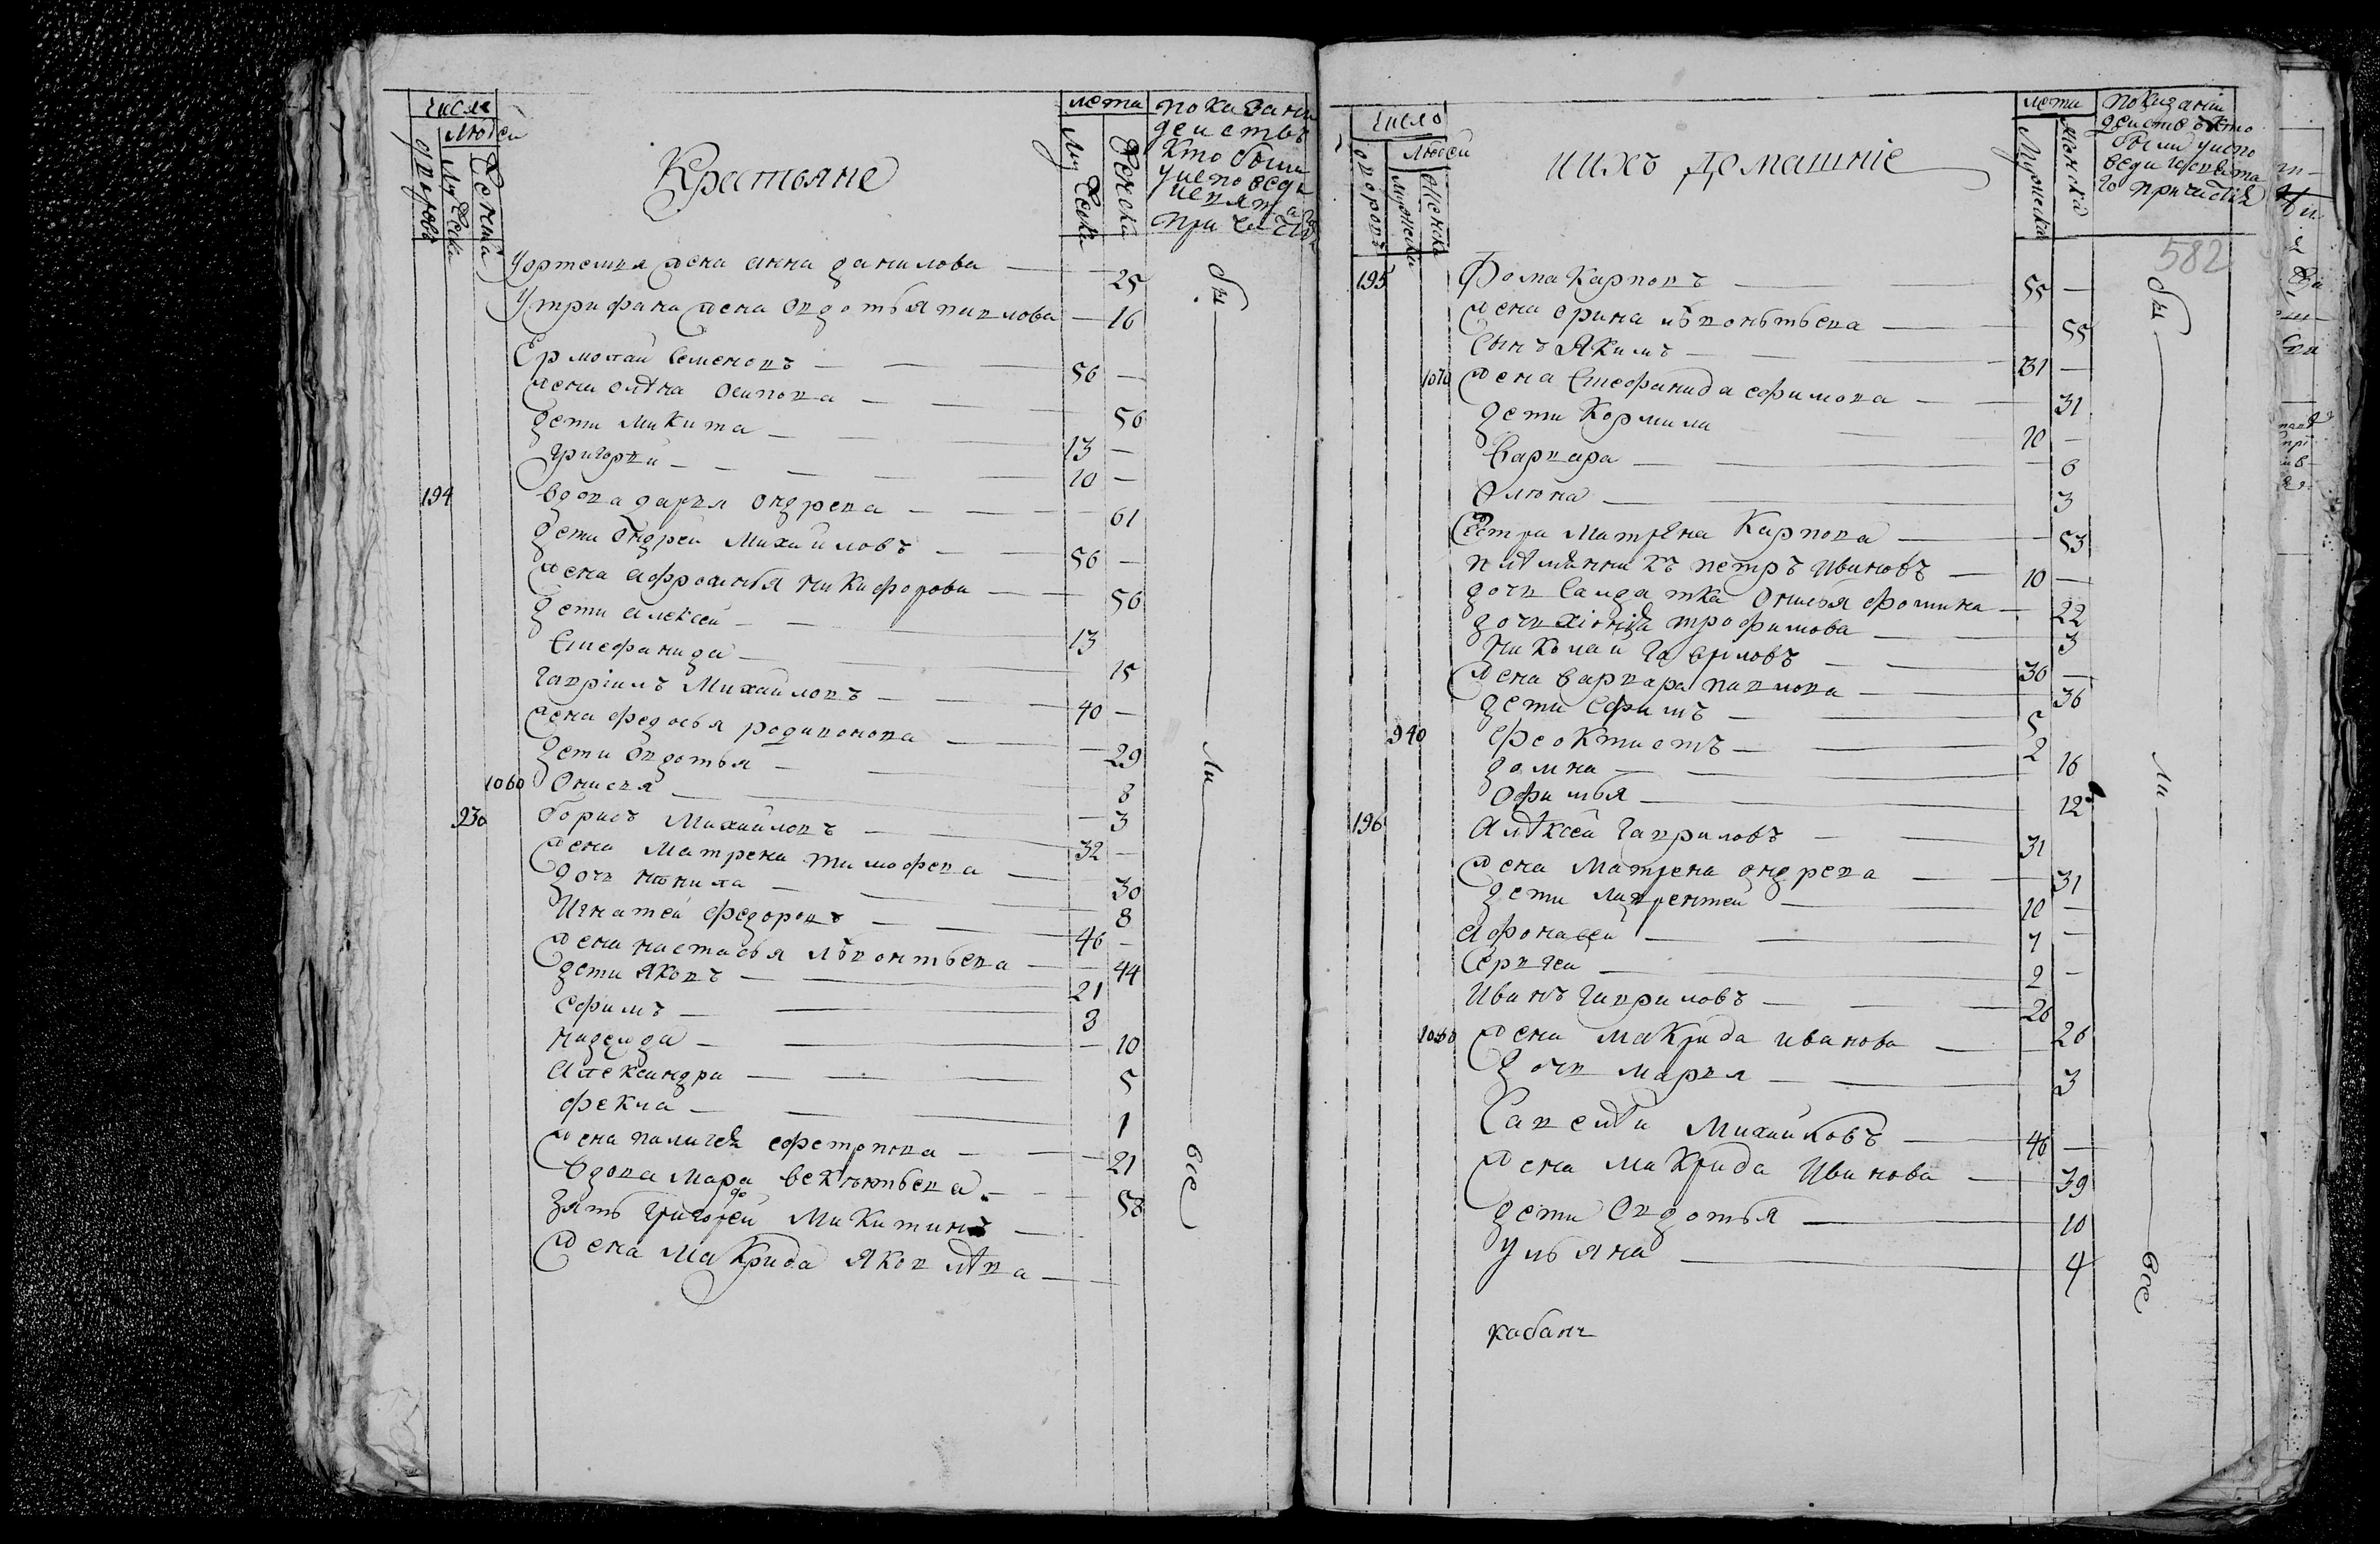 число
людеи
дворовъ
мужеска
женска
Крестьяне
лета
мужеска
женска
показани
деиствъ
кто были
уисповеди
исвята
причасти
Уортемия жена анна данилова — 25
Утрифана жена овдотья павлова — 16
Ермолаи Семеновъ — 56 —
жена олѣна осипова — 56
дети микита — 13 —
григореи — 10 —
194 вдова дария ондрева — 61
дети ондреи Михаиловъ — 56 —
жена афросинья никифорова — 56
дети алексеи — 13
Стефанида — 15
гавріилъ Михаиловъ — 40 —
жена федосья родивонова — 29
дети овдотья — 8
1060 Онисия — 3
930 борисъ Михаиловъ — 32 —
жена Матрена тимофева — 30
дочь ненила — 8
Игнатеи федоровъ — 46 —
жена настасья лѣвонтьева — 44
дети яковъ — 21
ефимъ — 8
надежда — 10
Александра — 5
фекла — 1
жена палагея ефетопова — 21
вдова Марфа — 58
зять григореи Микитинъ —
жена Макрида Яковлѣва —
бы
ли
все
число
людеи
дворовъ
мужеска
женска
иихъ домашніе
лета
мужеска
женска
показании
деиствъ кто
были уиспо
веди исвята
го причастия
582
195 Фома Карповъ — 55 —
жена орина лѣвоньтьева — 55
сынъ Якимъ — 31 —
1070 жена Стефанида ефимова — 31
дети Кормила 10 —
Варвара — 6
Олюна — 3
Сестра Матрѣна Карпова — 53
племянникъ петръ Ивановъ — 10 —
дочь Салдатка Онисья фомина — 22
дочь хіонія трофимова — 3
Николаи Гавриловъ — 36 —
жена варвара павлова — 36
дети ефимъ — 5
940 феоктистъ — 2
домна — 16
офимья — 12
196 Алѣксеи гавриловъ — 31
жена Матрена ондрева — 31
дети лаврентеи — 10 —
афонасеи — 7 —
Сергеи — 2 —
Иванъ гавриловъ — 26
1080 жена Макрида иванова — 26
дочь мария — 3
Савелѣи Михаиловъ — 46 —
жена Макрида Иванова — 39
дети Овдотья — 10
ульяна — 4
кабанъ
бы
ли
все